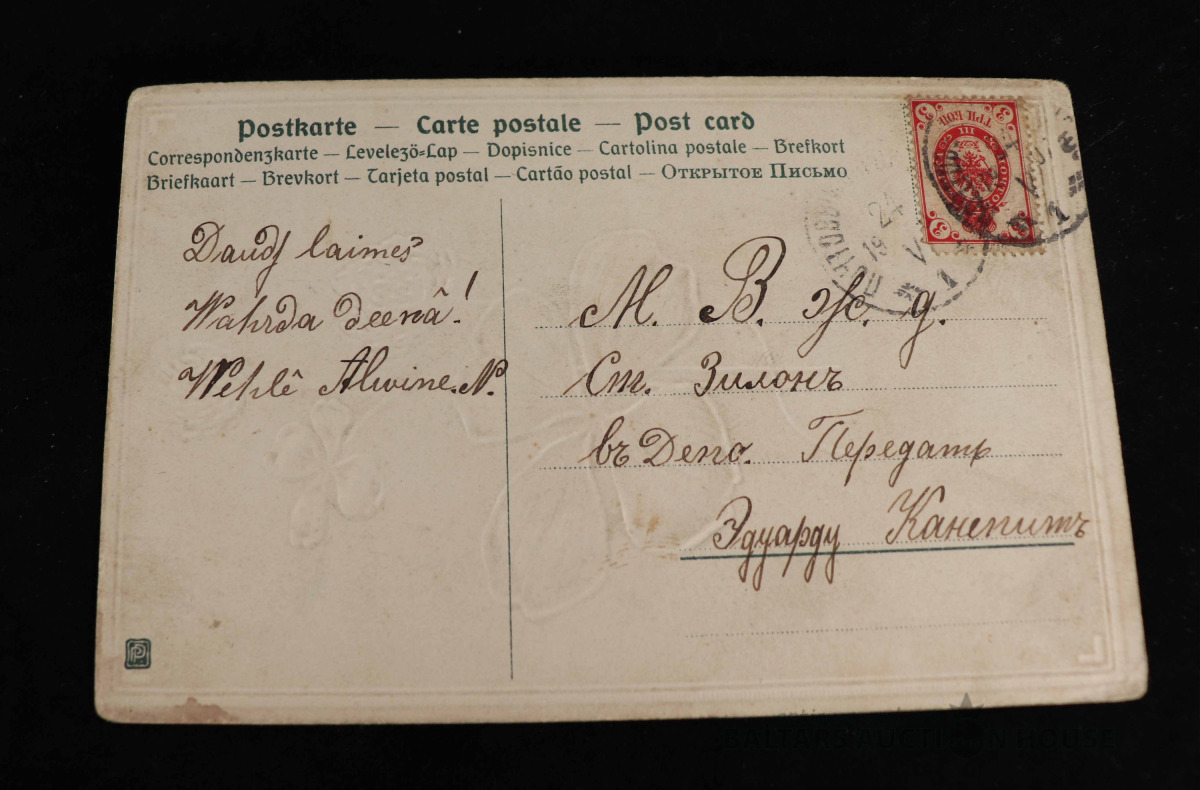 Postkarte — Carte postale — Post card
Correspondenzkarte — Levelezö-Lap — Dopisnice — Cartolina postale — Brefkort
Briefkaart — Brevkort — Tarjeta postal — Cartão postal — Открытое Письмо
Daudſ laimes
Wahrda deenâ!
Wehlê Alwine. N.
М. В. ж. д.
Ст. Зилонъ
въ Депо. Передать
Эдуарду
ТРИ КОП.
3
3
3
3
24
19
VI
1
1
BALTARS AUCTION HOUSE